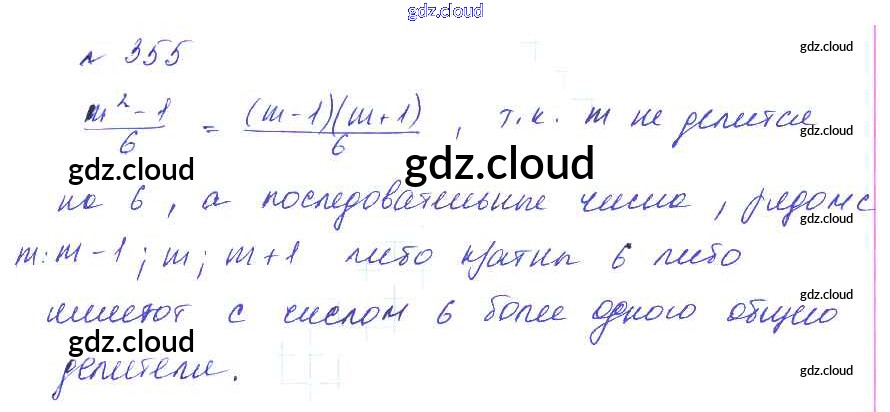 gdz.cloud
№ 355
gdz.cloud
(m² - 1)/6 = ((m-1)(m+1))/6, т.к. m не делится
gdz.cloud
gdz.cloud gdz.cloud gdz.cloud
на 6, а последовательные числа, рядом с
gdz.cloud
m: m-1; m; m+1 либо кратны 6 либо
имеют с числом 6 более одного общего
gdz.cloud
gdz.cloud gdz.cloud
делителя.
gdz.cloud